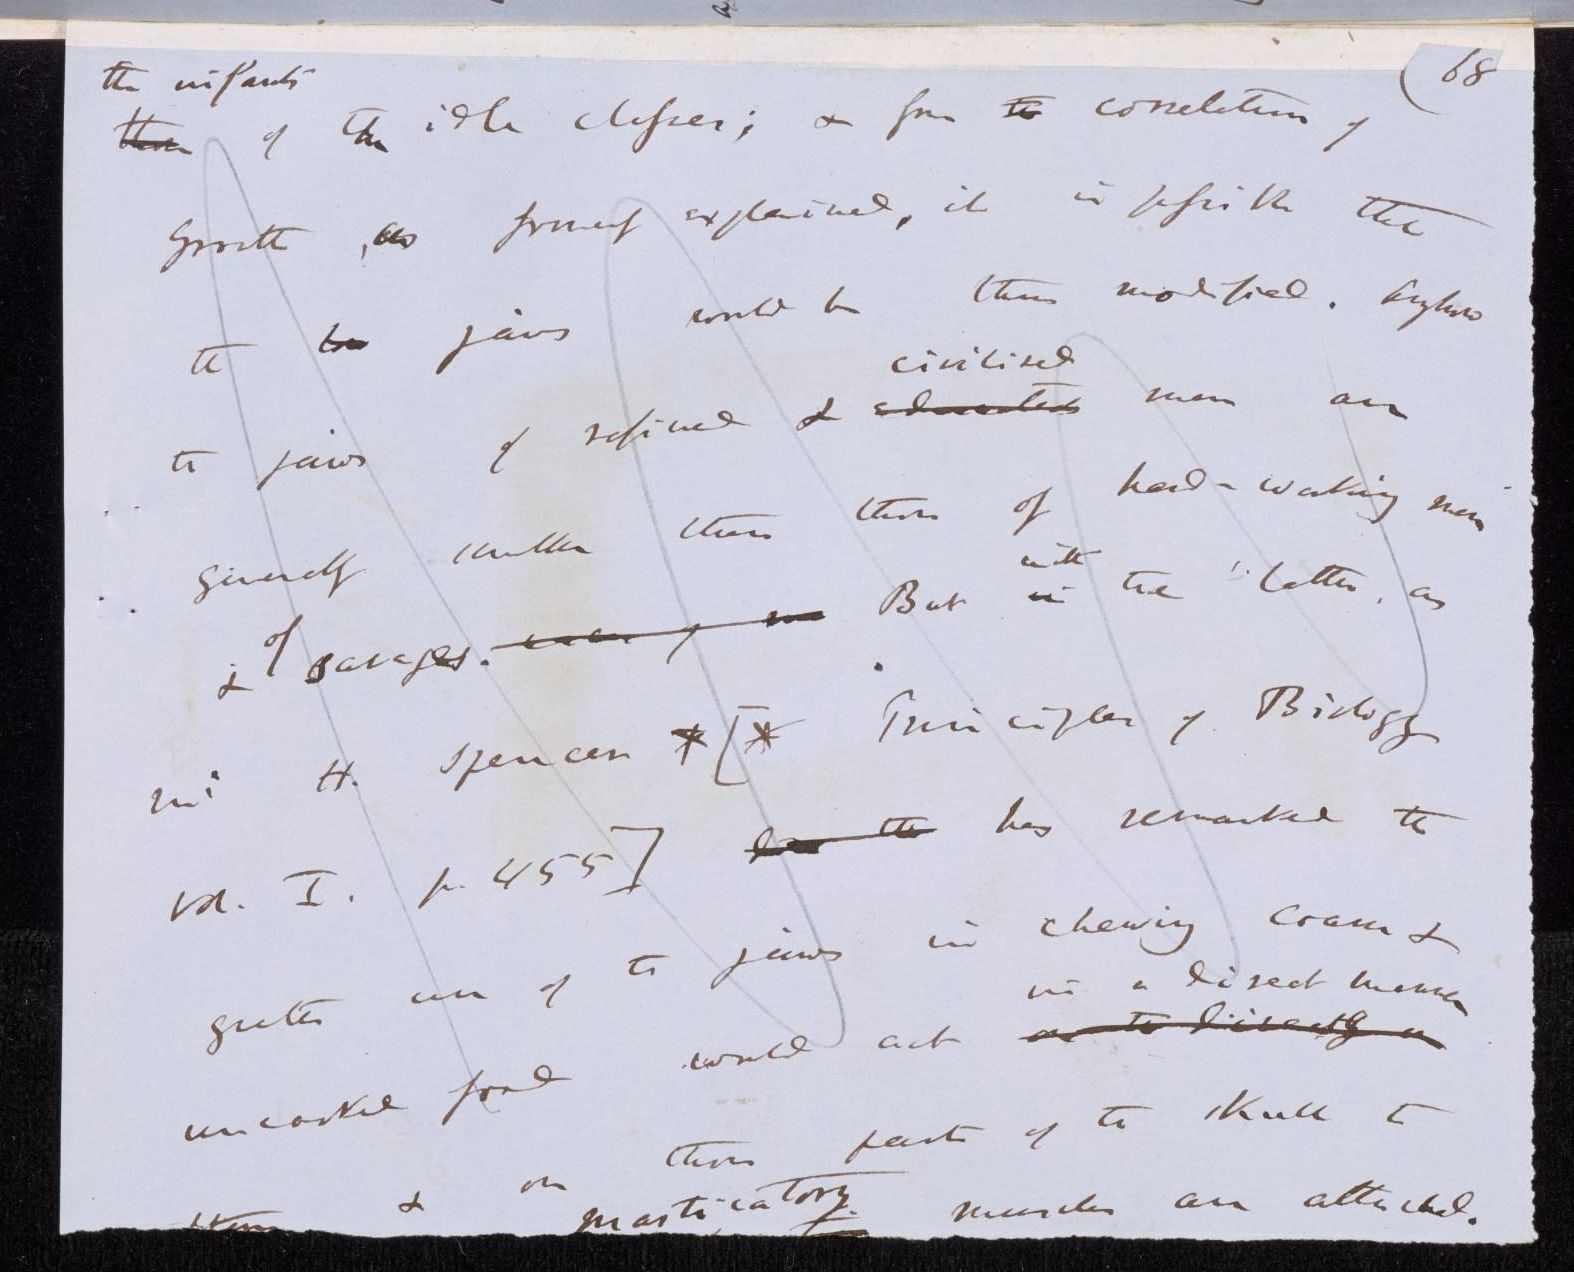 (68
the infants
those of the idle classes; & from the correlation of
growth, as formerly explained, it is possible that
the jaws would be thus modified. Anyhow
civilised
the jaws of refined & educated men are
generally smaller than those of hard-working men
with
& of savages. But in the latter, as
Mr H. Spencer * [* Principles of Biology
Vol. I. p. 455] has remarked the
greater use of the jaws in chewing coarse &
in a direct manner
uncooked food would act as to directly on
& on those parts of the skull to
masticatory muscles are attached.